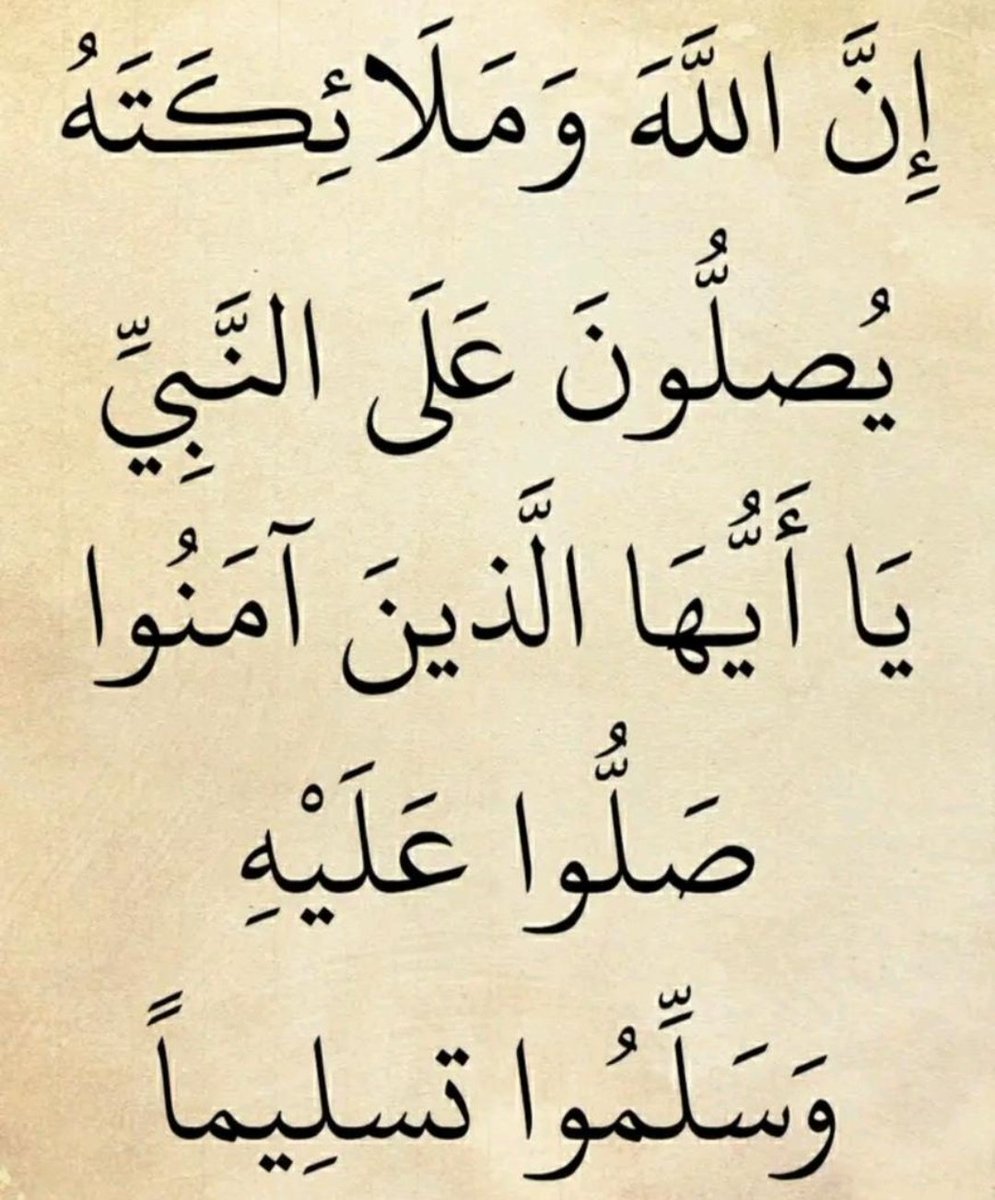 إِنَّ اللَّهَ وَمَلَائِكَتَهُ
يُصلُّونَ عَلَى النَّبِيِّ
يَا أَيُّهَا الَّذينَ آمَنُوا
صَلُّوا عَلَيْهِ
وَسَلِّمُوا تسلِيماً